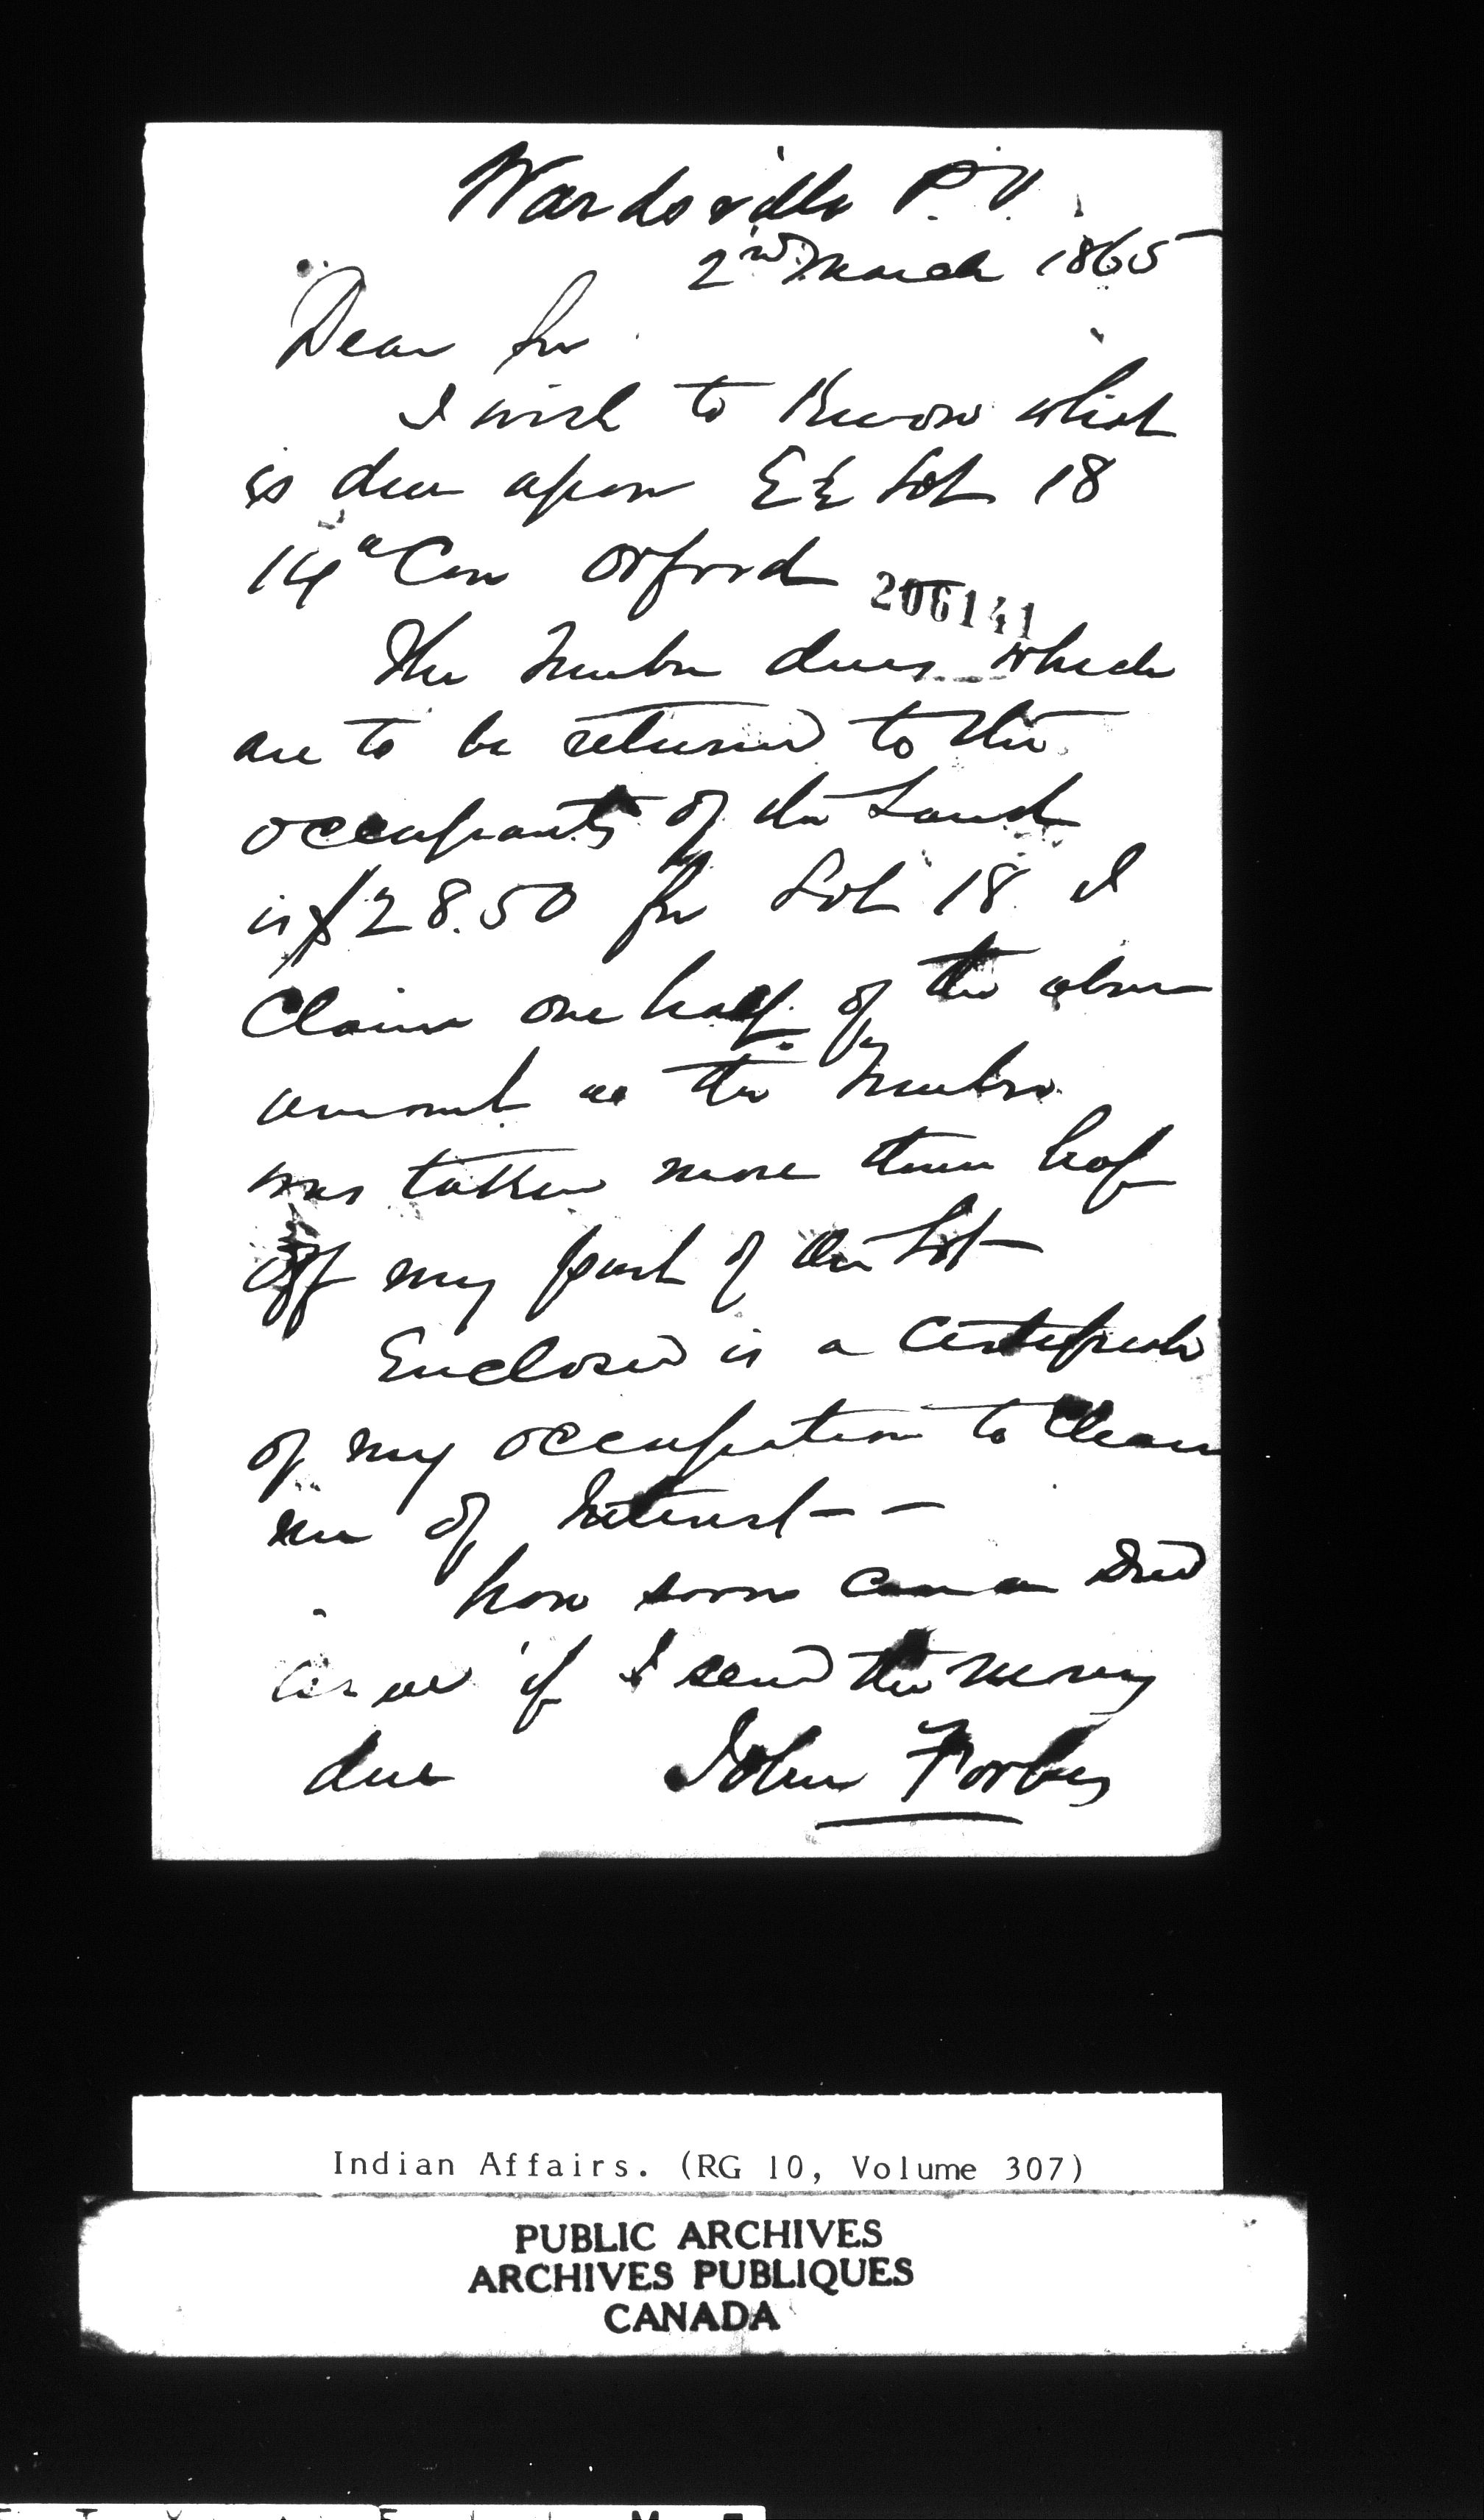 Wardsville P.O.
2nd March 1865
Dear Sir
I wish to Know what
is due upon E½ Lot 18
14th Con Orford
206141
The Timber dues which
are to be returned to the
occupants of the Land
is $28.50 for Lot 18 I
Claim one half of the above
amount as the Timber
was taken more than half
off my part of the Lot
Enclosed is a Certificate
of my occupation to Clear
me of Interest - -
how soon can a Deed
if I send the money
due John Forbes
Indian Affairs. (RG 10, Volume 307)
PUBLIC ARCHIVES
ARCHIVES PUBLIQUES
CANADA